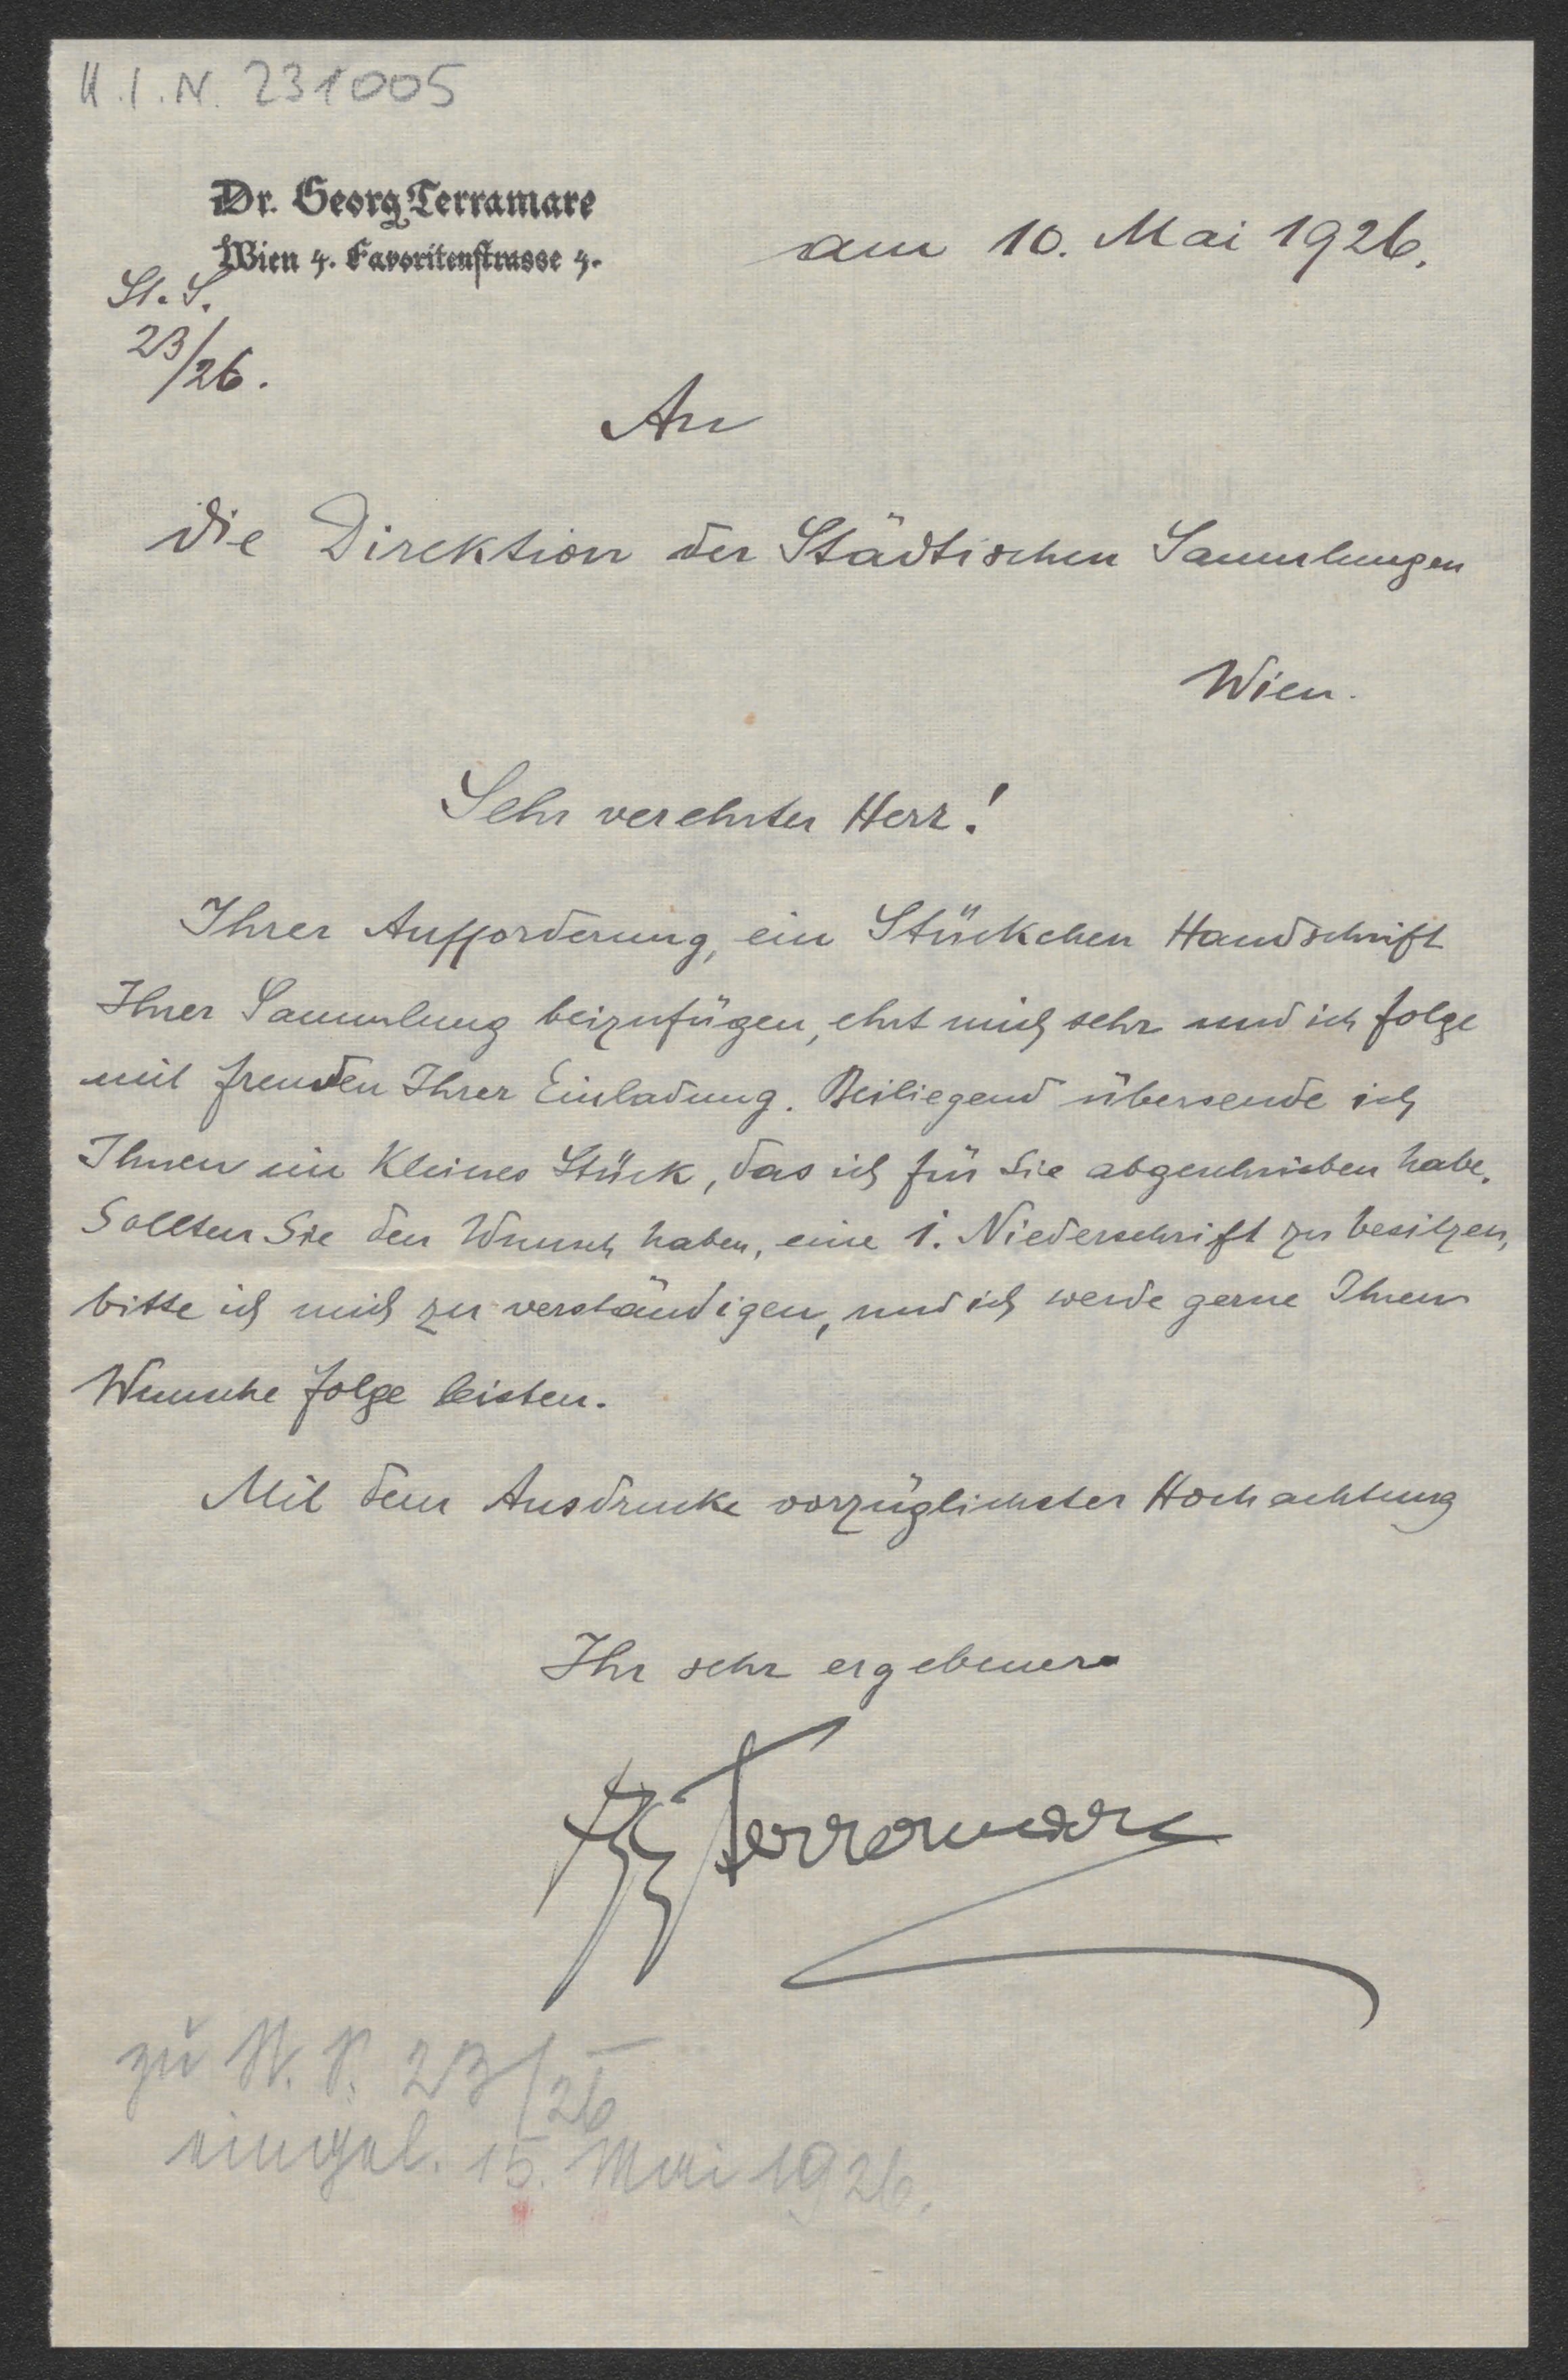 H.I.N. 231005
Dr. Georg Terramare
Wien 4. Favoritenstrasse 4.
am 10. Mai 1926.
St. S.
23/26.
An
die Direktion der Städtischen Sammlungen
Wien.
Sehr verehrter Herr!
Ihrer Aufforderung, ein Stückchen Handschrift
Ihrer Sammlung beizufügen, ehrt mich sehr und ich folge
mit freuden Ihrer Einladung. Beiliegend übersende ich
Ihnen ein kleines Stück, das ich für Sie abgeschrieben habe.
Sollten Sie den Wunsch haben, eine 1. Niederschrift zu besitzen,
bitte ich mich zu verständigen, und ich werde gerne Ihrem
Wunsche folge leisten.
Mit dem Ausdrucke vorzüglichster Hochachtung
Ihr sehr ergebener
Terramare
zu St. S. 23/26
eingel. 15. Mai 1926.